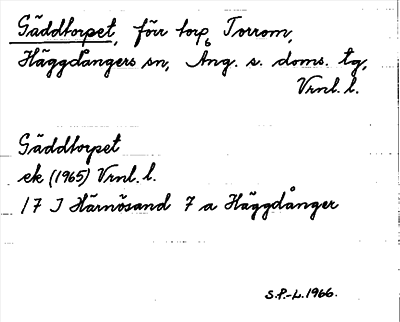 Gäddtorpet, förr torp, Torrom,
Häggdångers sn, Ång. s. doms. tg,
Vrnl. l.
Gäddtorpet
ek (1965) Vrnl. l.
17 J Härnösand 7 a Häggdånger
S.P.-L. 1966.